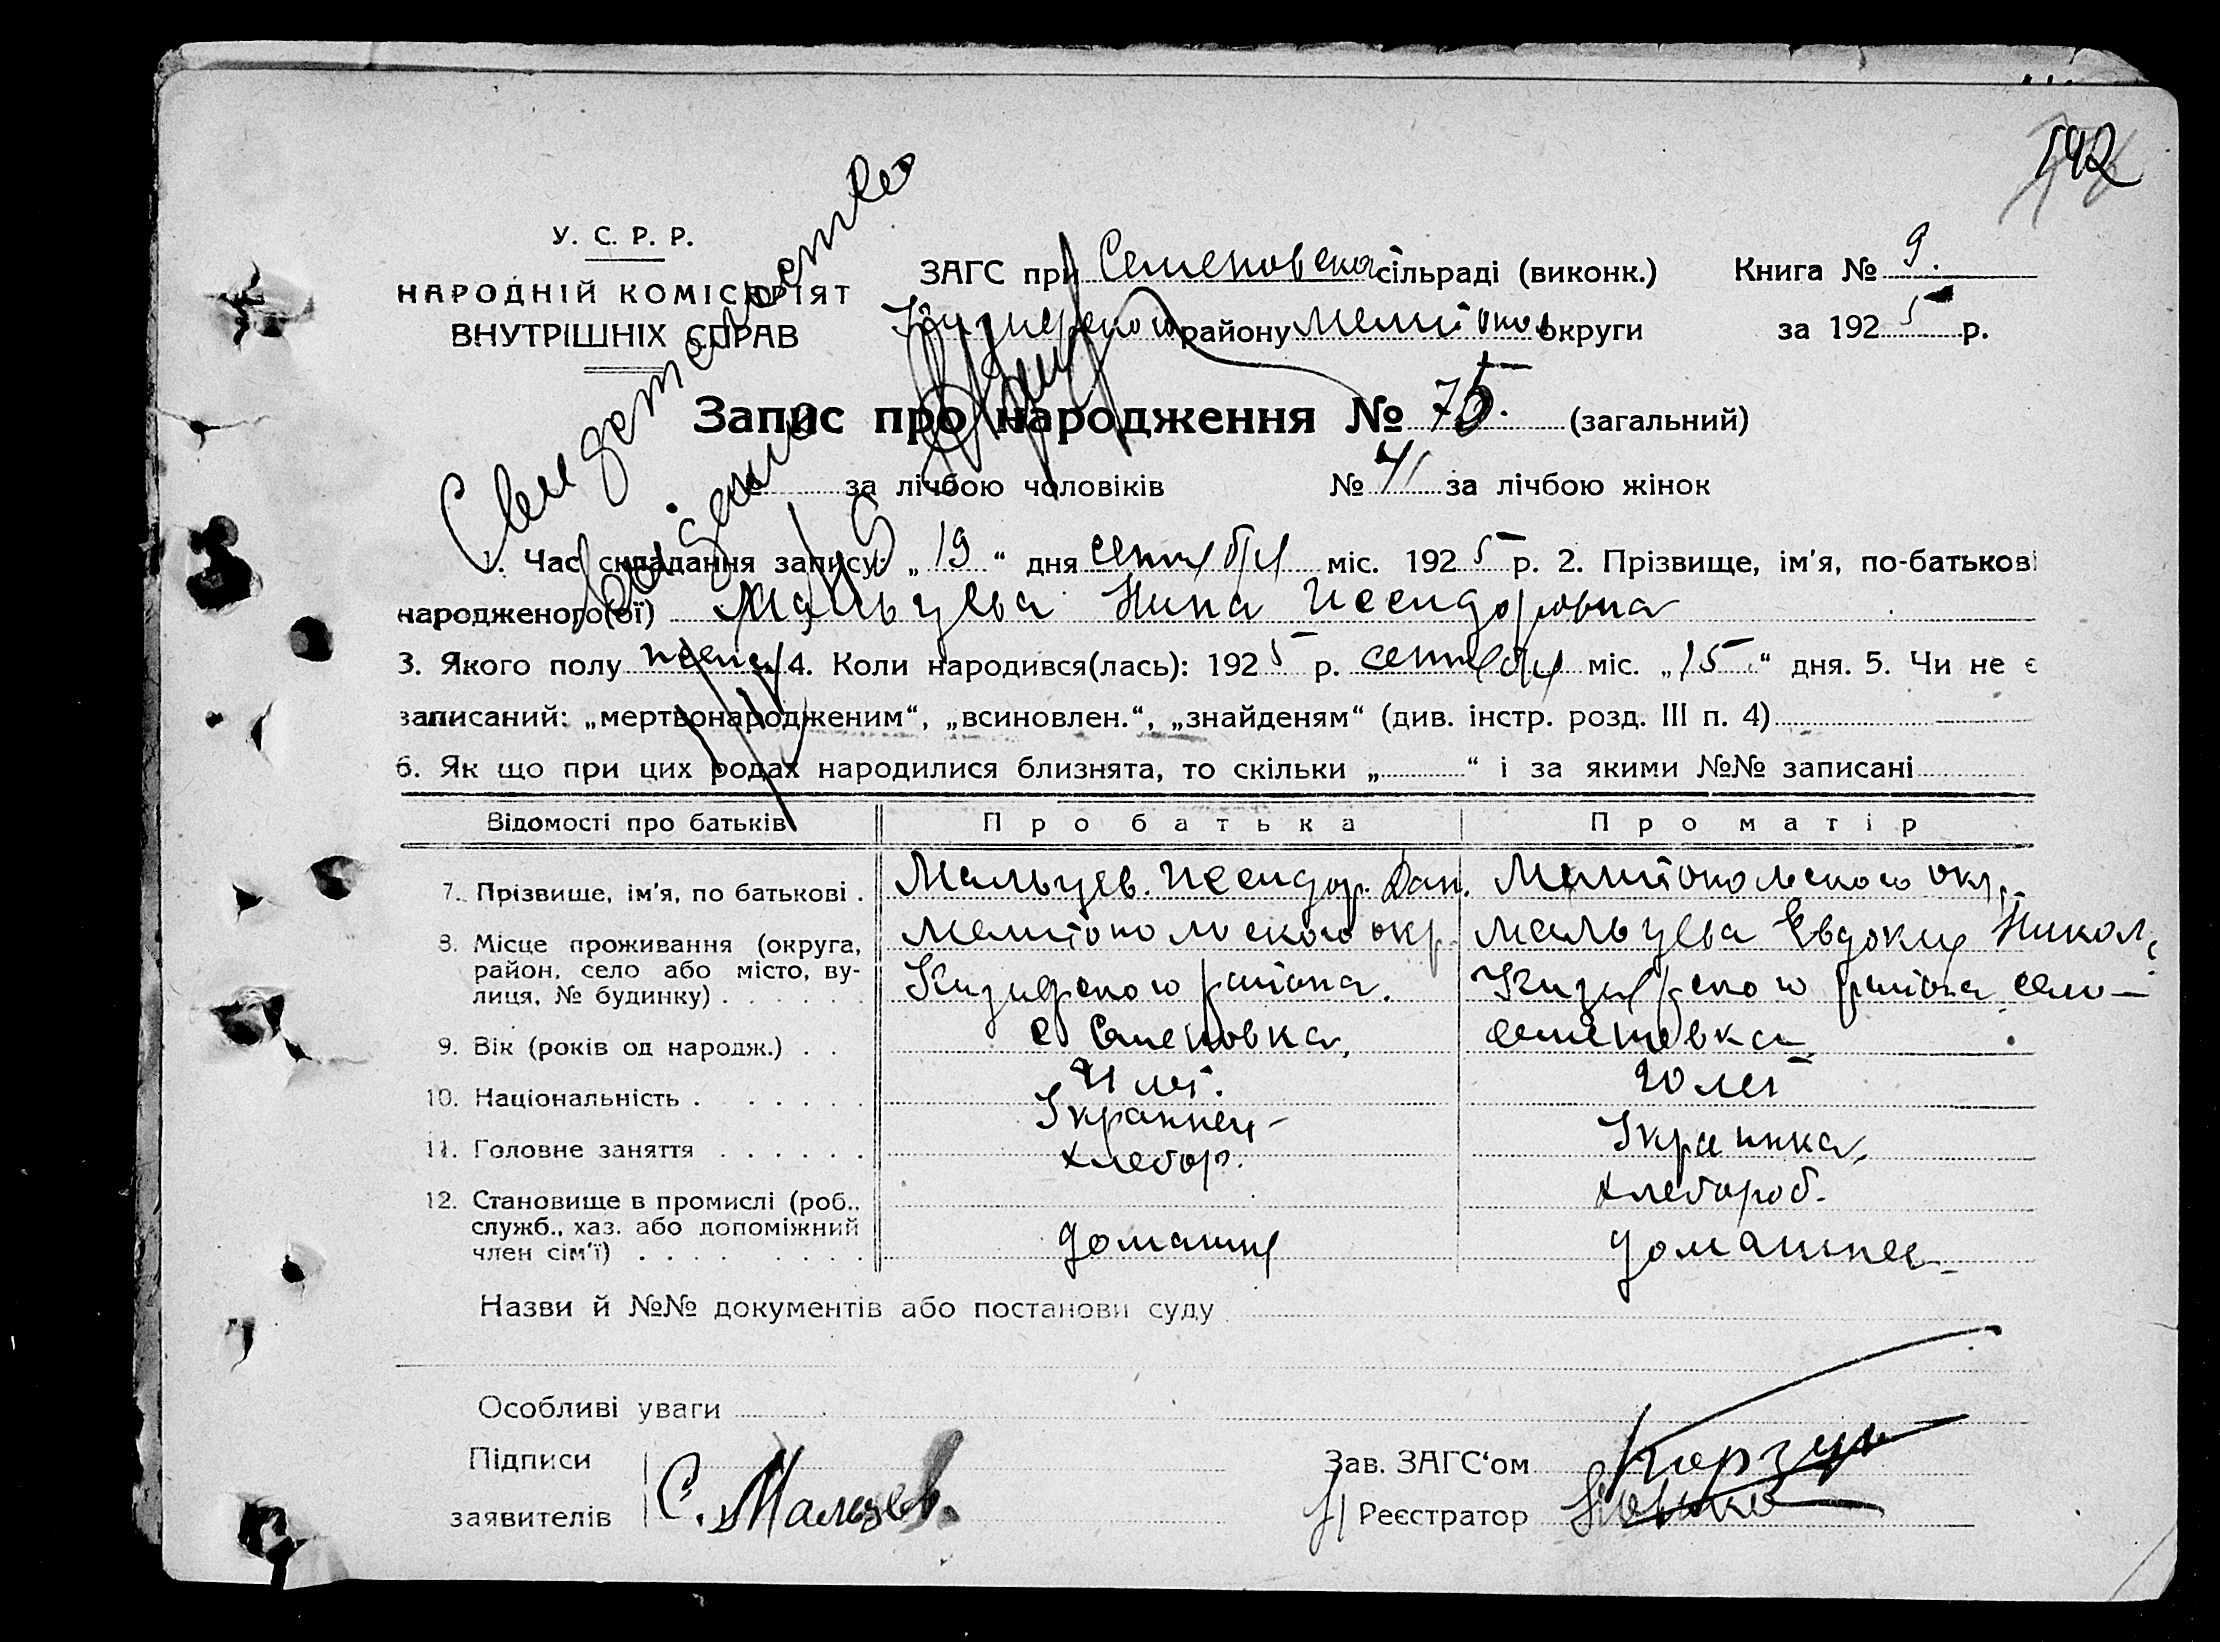 192
У. С. Р. Р.
НАРОДНІЙ КОМІСАРІЯТ
ВНУТРІШНІХ СПРАВ
Свидетельство
выдано
ЗАГС при Семеновской сільраді (виконк.) Книга № 9.
району Мелитоп округи за 1925 р.
Запис про народження № 75. (загальний)
за лічбою чоловіків № 41 за лічбою жінок
Час складання запису: „19“ дня сентября міс. 1925 р. 2. Прізвище, ім'я, по-батькові
народженого(ої) Мальцева Нина Исендоровна
3. Якого полу женск 4. Коли народився(лась): 1925 р. сентября міс. „15“ дня. 5. Чи не є
записаний: „мертвонародженим“, „всиновлен.“, „знайденям“ (див. інстр. розд. III п. 4)
6. Як що при цих родах народилися близнята, то скільки „ “ і за якими №№ записані
Відомості про батьків Про батька Про матір
7. Прізвище, ім'я, по батькові . Мальцев. Исендор. Дан. Мелитопольского окр.
8. Місце проживання (округа, Мелитопольского окр. Мальцева Евдокия Никол.
район, село або місто, ву-
лиця, № будинку) . . . . . . Кизиярского района. Кизиярского района село —
9. Вік (років од народж.) . . с Семеновка, Семеновка
10. Національність . . . . . . . 21 лет. 20 лет
Украинец Украинка,
11. Головне заняття . . . . . . хлебор. хлебороб.
12. Становище в промислі (роб.,
служб., хаз. або допоміжний домашня домашнея
член сім'ї) . . . . . . . .
Назви й №№ документів або постанови суду
Особливі уваги
Підписи
заявителів С. Мальцев.
Зав. ЗАГС'ом
Реєстратор